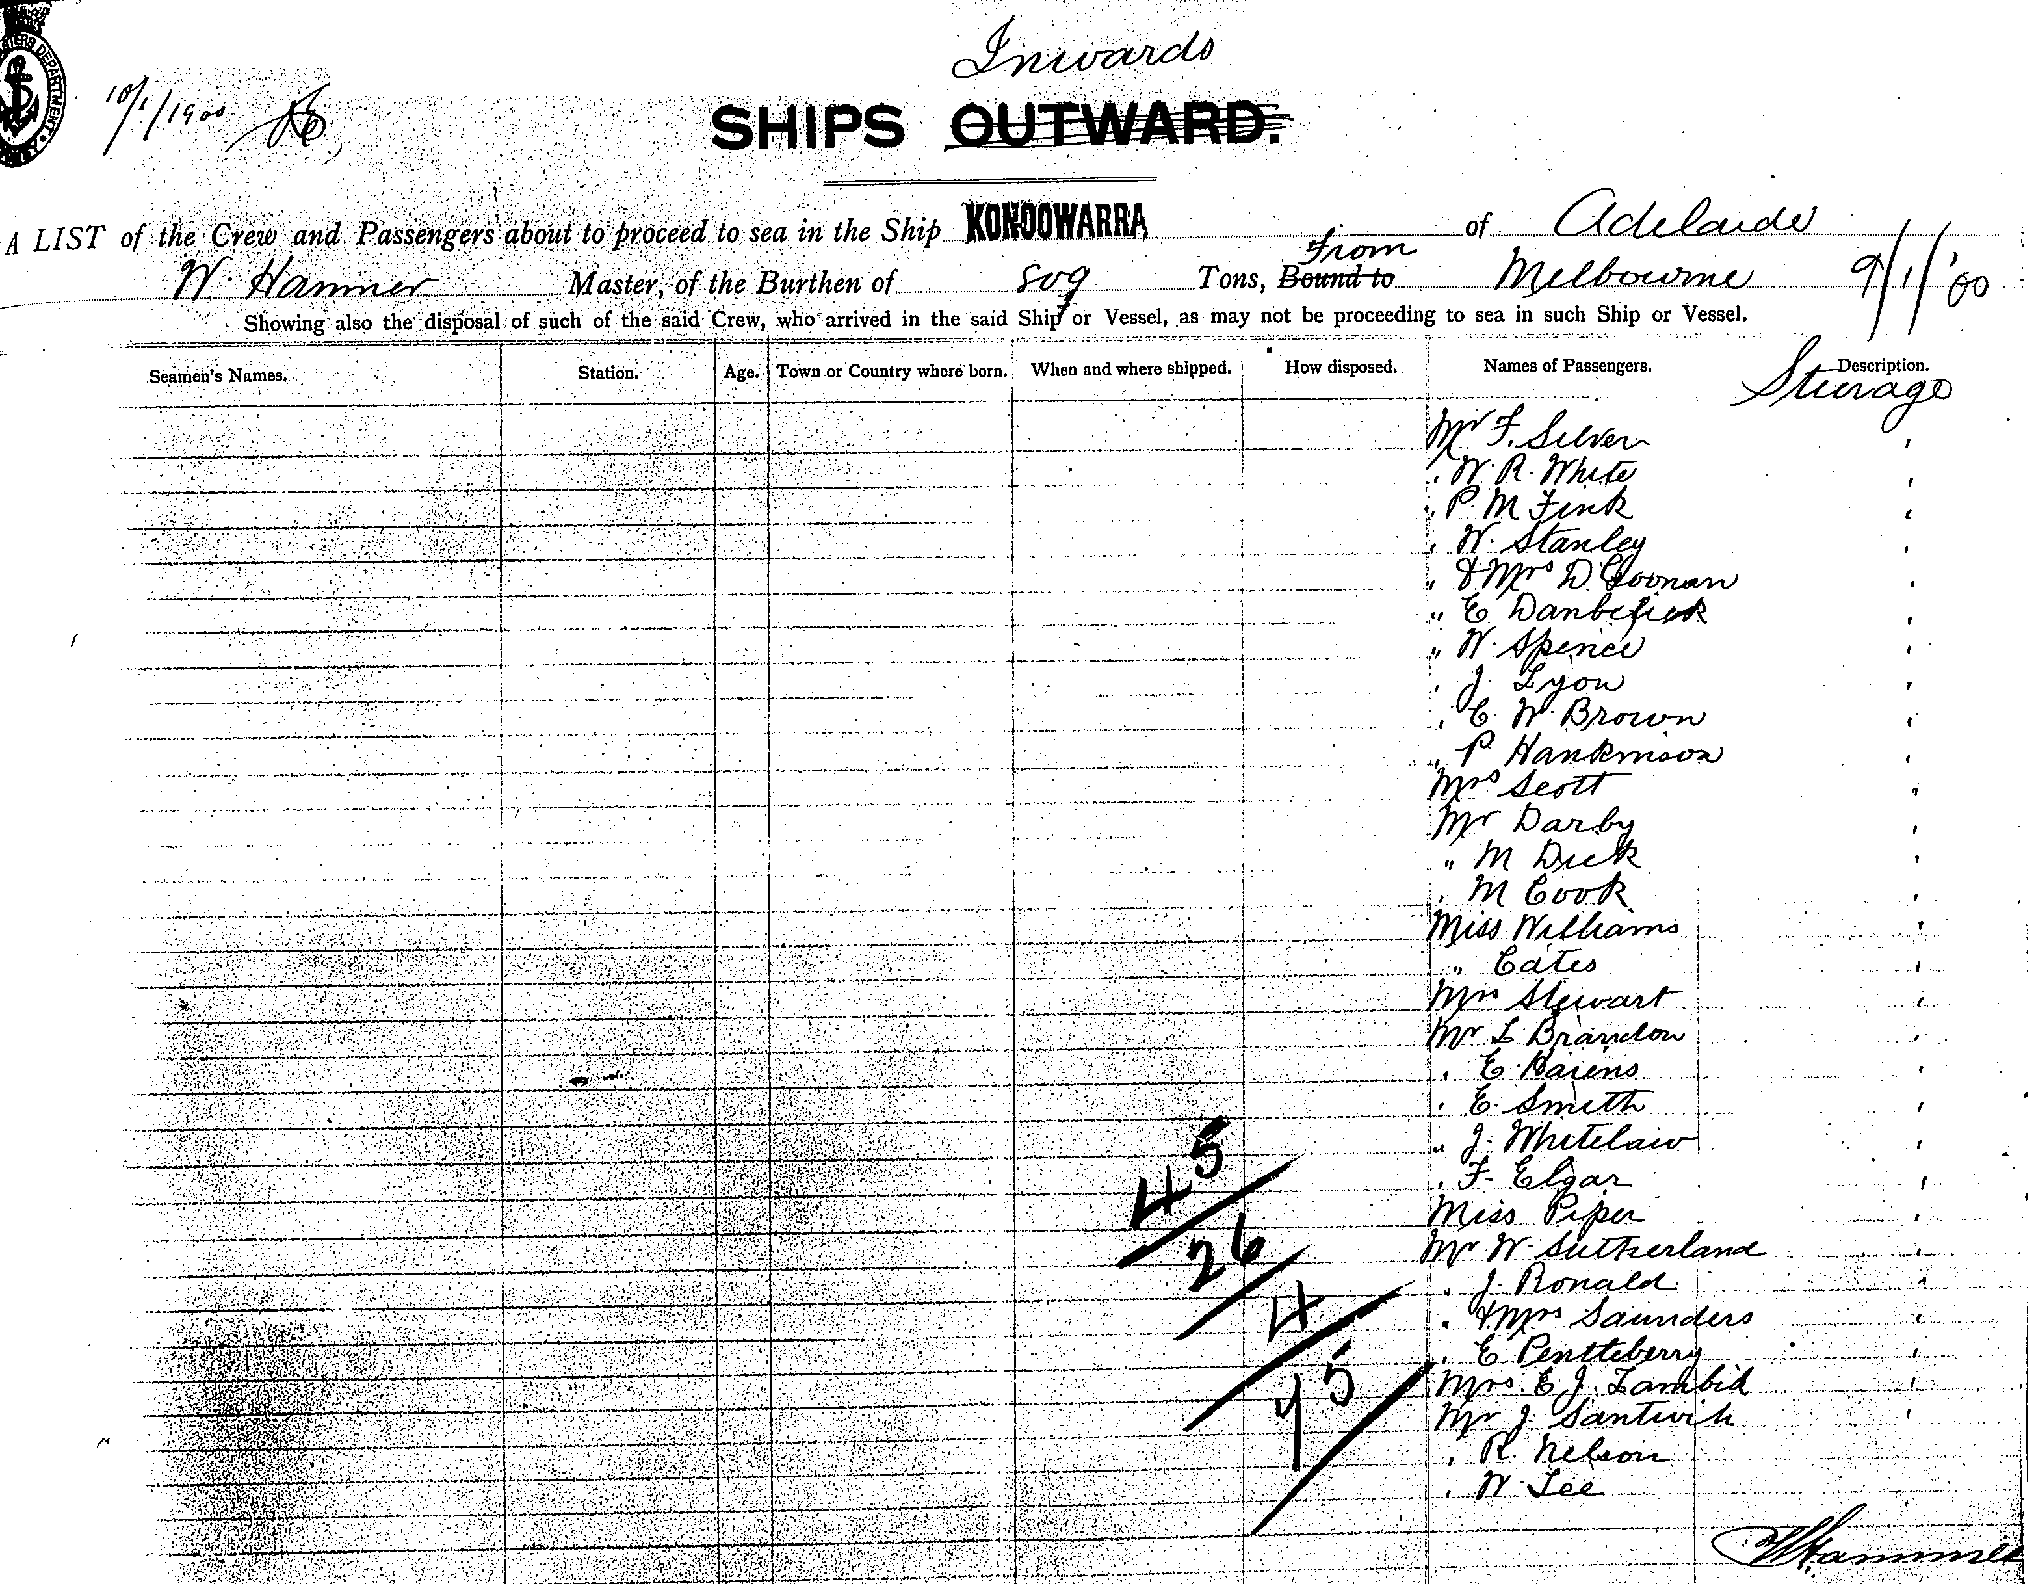 Inwards
10/1/1900
SHIPS OUTWARD.
A LIST of the Crew and Passengers about to proceed to sea in the Ship KONOOWARRA of Adelaide
From
W. Hammer Master, of the Burthen of 809 Tons, Bound to Melbourne 9/1/'00
Showing also the disposal of such of the said Crew, who arrived in the said Ship or Vessel, as may not be proceeding to sea in such Ship or Vessel.
Seamen's Names. Station. Age. Town or Country where born. When and where shipped. How disposed. Names of Passengers. Description.
Steerage
Mr F. Silver '
" W. R. White '
" P. M Fink '
" W. Stanley '
" & Mrs D. Goonan '
" E '
" W. Spence '
" J. Lyon '
" E. W. Brown '
" P Hankinson '
Mrs Scott "
Mr Darby '
" M Dick '
" M Cook '
Miss Williams '
" Cates '
Mrs Stewart '
Mr L Brandon '
" E. Bairns '
" E. Smith '
" J. Whitelaw '
" F. Elgar '
Miss Piper '
Mr W. Sutherland '
" J. Ronald '
" & Mrs Saunders '
" E Pentteberry '
Mrs E. J. Lambick '
Mr J. '
" R. Nelson
" W. Lee
45
26
4
75
W Hammer